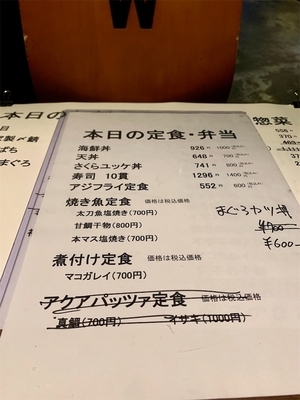 W
本日の
製〆鯖
ばち
まぐろ
惣菜
本日の定食・弁当
海鮮丼 926 1000
天丼 648 700
さくらユッケ丼 741 800
寿司 10貫 1296 1400
アジフライ定食 552 600
焼き魚定食 価格は税込価格
太刀魚塩焼き(700円)
甘鯛干物(800円)
本マス塩焼き(700円)
まぐろカツ丼
¥700
¥600
煮付け定食 価格は税込価格
マコガレイ(700円)
アクアパッツァ定食 価格は税込価格
真鯛(700円) イサキ(1000円)